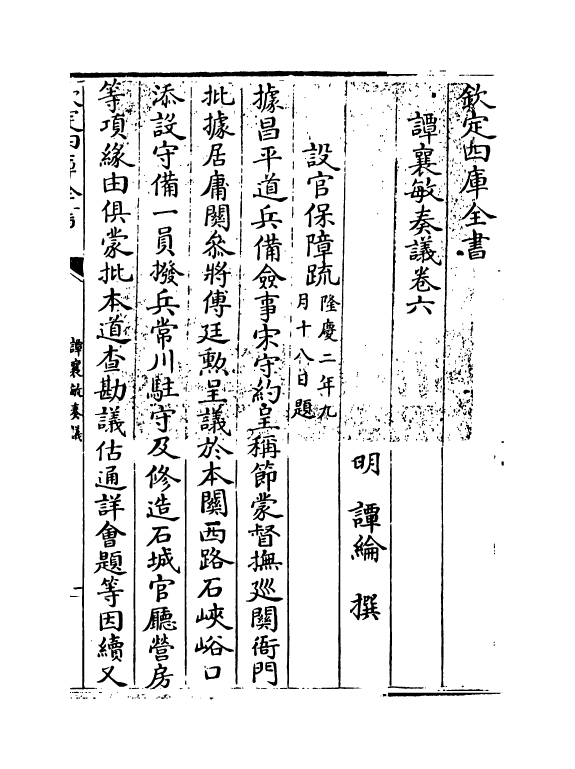 欽定四庫全書
譚襄敏奏議卷六
明 譚綸 撰
設官保障疏隆慶二年九月十八日題
據昌平道兵備僉事宋守約呈稱節蒙督撫廵關衙門
批據居庸關叅將傅廷勲呈議於本關西路石峽峪口
添設守備一員撥兵常川駐守及修造石城官廳營房
等項緣由俱蒙批本道查勘議估通詳㑹題等因續又
欽定四庫全書
譚襄敏奏議
一